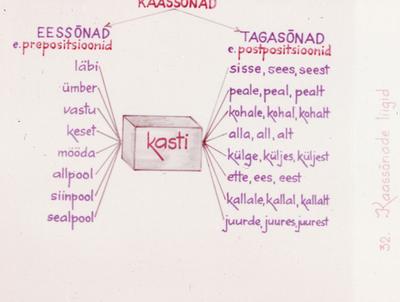 KAASSÕNAD
EESSÕNAD
e. prepositsioonid
läbi
ümber
vastu
keset
mööda
allpool
siinpool
sealpool
kasti
TAGASÕNAD
e. postpositsioonid
sisse, sees, seest
peale, peal, pealt
kohale, kohal, kohalt
alla, all, alt
külge, küljes, küljest
ette, ees, eest
kallale, kallal, kallalt
juurde, juures, juurest
32. Kaassõnade liigid